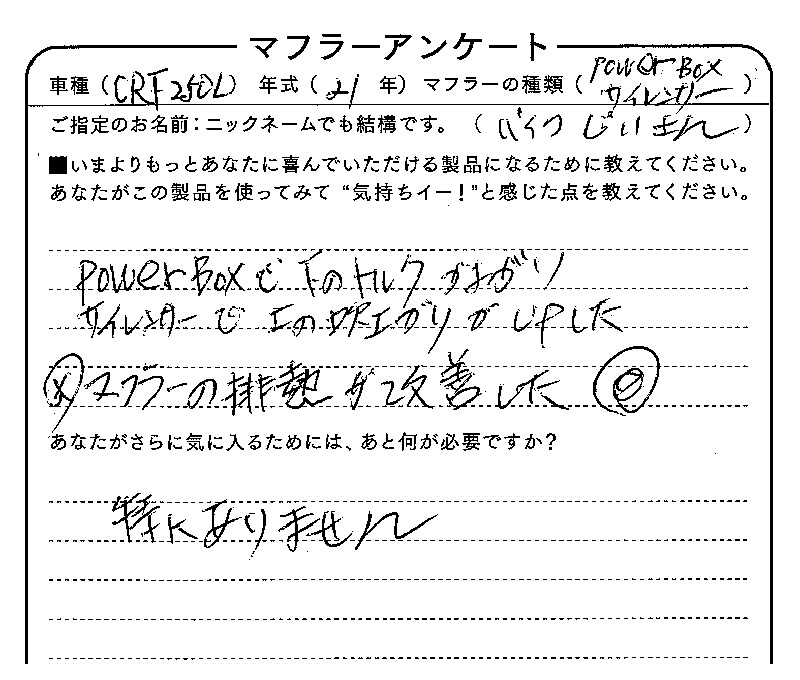 マフラーアンケート
車種（CRF250L）年式（21 年）マフラーの種類（Power Box サイレンサー）
ご指定のお名前：ニックネームでも結構です。（バイクじいさん）
■いまよりもっとあなたに喜んでいただける製品になるために教えてください。
あなたがこの製品を使ってみて “気持ちイー！”と感じた点を教えてください。
Power Boxで下のトルクがあがり
サイレンサーで上の吹上がりがUPした
マフラーの排熱が改善した ◎
あなたがさらに気に入るためには、あと何が必要ですか？
特にありません